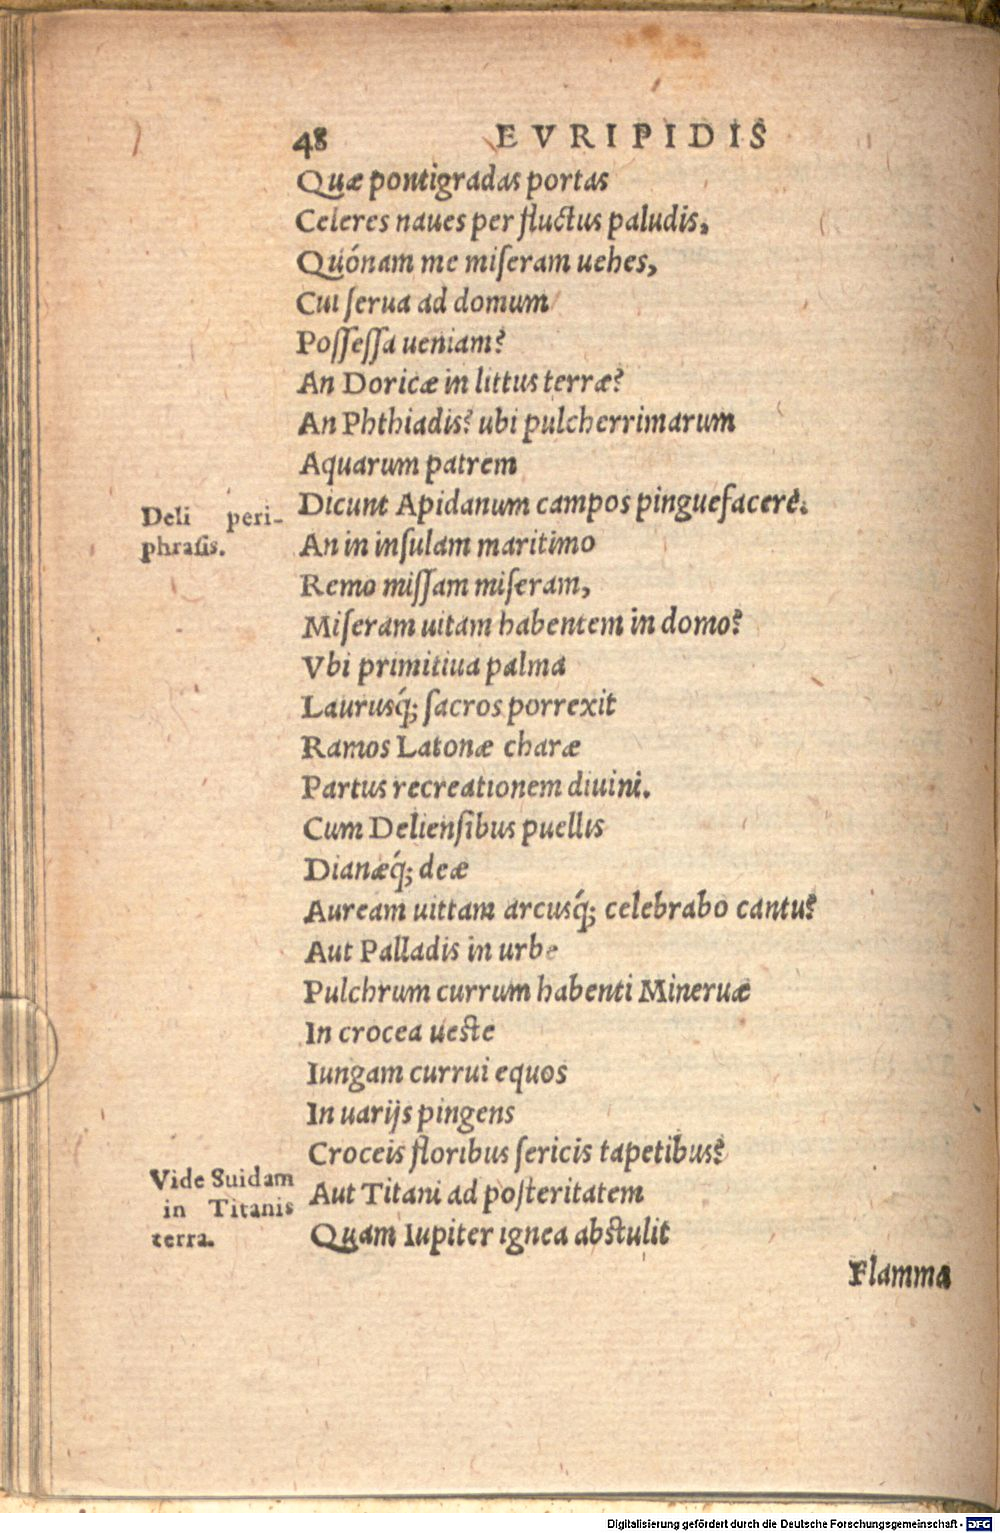 48 EVRIPIDIS
Quæ pontigradas portas
Celeres naues per fluctus paludis,
Quónam me miſeram uehes,
Cui ſerua ad domum
Poſſeſſa ueniam?
An Doricæ in littus terræ?
An Phthiadis? ubi pulcherrimarum
Aquarum patrem
Dicunt Apidanum campos pinguefacere.
Deli peri-
phraſis.
An in inſulam maritimo
Remo miſſam miſeram,
Miſeram uitam habentem in domo?
Vbi primitiua palma
Laurusq́; ſacros porrexit
Ramos Latonæ charæ
Partus recreationem diuini.
Cum Delienſibus puellis
Dianæq́; deæ
Auream uittam arcusq́; celebrabo cantu?
Aut Palladis in urbe
Pulchrum currum habenti Mineruæ
In crocea ueste
Iungam currui equos
In uarijs pingens
Croceis floribus ſericis tapetibus?
Vide Suidam
in Titanis
terra.
Aut Titani ad poſteritatem
Quam Iupiter ignea abstulit
Flamma
Digitalisierung gefördert durch die Deutsche Forschungsgemeinschaft - DFG